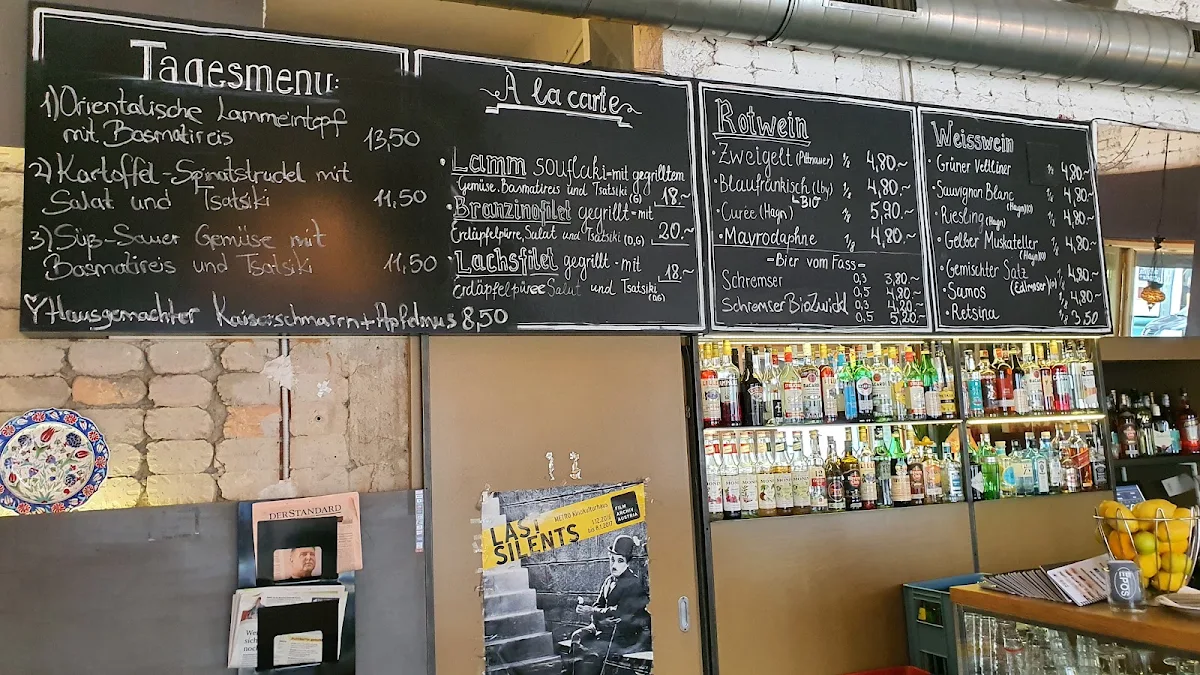 Tagesmenu:
1) Orientalische Lammeintopf
mit Basmatireis 13,50
2) Kartoffel-Spinatstrudel mit
Salat und Tsatsiki 11,50
3) Süß-Sauer Gemüse mit
Basmatireis und Tsatsiki 11,50
♡ Hausgemachter Kaiserschmarrn + Apfelmus 8,50
À la carte
• Lamm souflaki - mit gegrilltem
Gemüse, Basmatireis und Tsatsiki (G) 18.~
• Branzinofilet gegrillt - mit
Erdäpfelpüree, Salat und Tsatsiki (D,G) 20.~
• Lachsfilet gegrillt - mit
Erdäpfelpüree Salat und Tsatsiki (D,G) 18.~
Rotwein
• Zweigelt (Pittnauer) 1/8 4,80.~
• Blaufränkisch (Iby) 1/8 4,80.~
↳ BIO
• Curée (Hagn) 1/8 5,90.~
• Mavrodaphne 1/8 4,80.~
- Bier vom Fass -
Schremser 0,3 3,80.~
0,5 4,80.~
Schremser BioZwickl 0,3 4,20.~
0,5 5,20.~
Weisswein
• Grüner Veltliner 1/8 4,80.~
• Sauvignon Blanc (Hagn) 1/8 4,80.~
• Riesling (Hagn) 1/8 4,80.~
• Gelber Muskateller (Hagn) 1/8 4,80.~
• Gemischter Satz (Edlmoser) 1/8 4,80.~
• Samos 1/8 4,80.~
• Retsina 1/8 3,50
DERSTANDARD
LAST
SILENTS
METRO Kinokulturhaus
1.12.2016
bis 8.1.2017
FILM
ARCHIV
AUSTRIA
EPOS